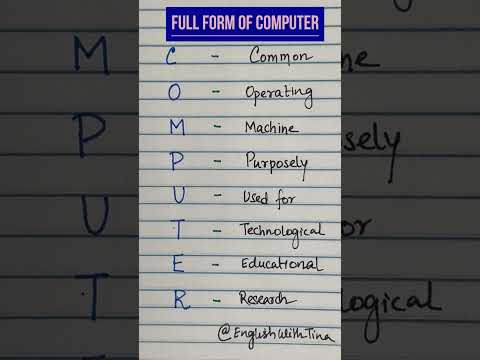 FULL FORM OF COMPUTER
C - Common
O - Operating
M - Machine
P - Purposely
U - Used for
T - Technological
E - Educational
R - Research
@EnglishWithTina
M
P
U
T
ne
sely
or
logical